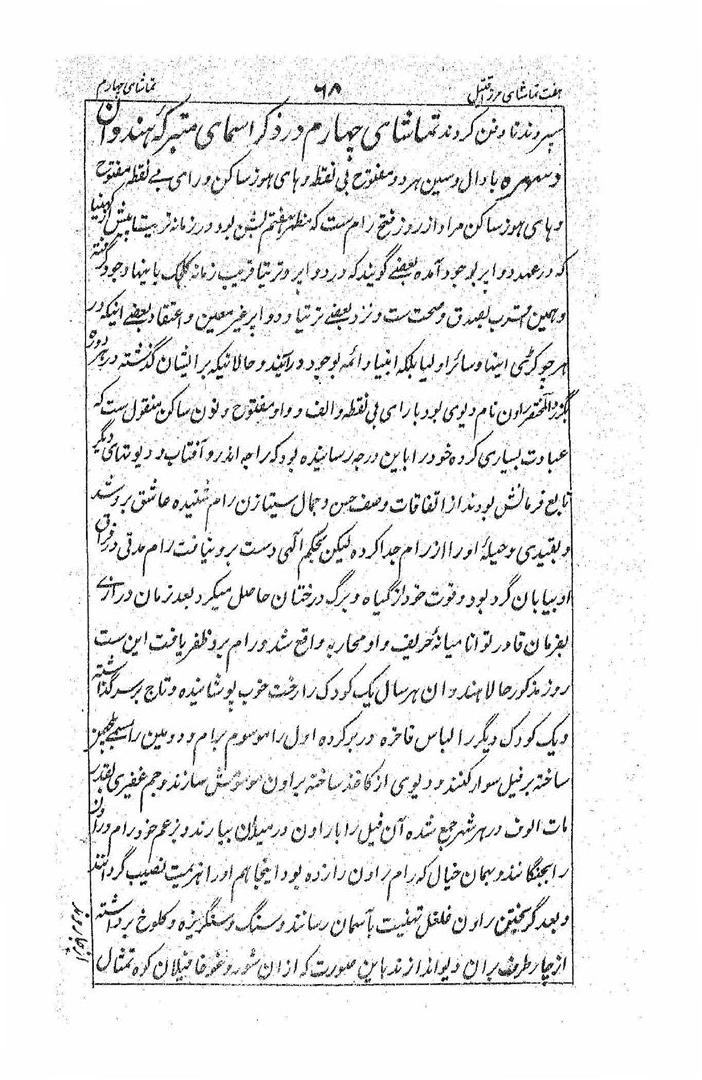 هفت تماشای مرزا قتیل ۶۸ تماشای چهارم
سپروند تا وفن کردند تماشای چهارم در ذکر اسمای متبرکهٔ هندوان
دسهره با دال و سین هر دو مفتوح بی نقطه و های هوز ساکن و رای بی نقطه مفتوح
و های هوز ساکن مراد از روز فتح رام ست که مظهر هفتم بشن بود در زمانه تریتا پیش از کنهیا
که در عهد دواپر بوجود آمده بعضے گویند که در دواپر و تریتا قریب زمانه کلجگ باینها وجود گرفته
و همین اقرب بصدق و صحت ست و نزد بعضے تریتا و دواپر غیر معین و اعتقاد بعضے اینکه در
هر چوکڑی اینها و سائر اولیا بلکه انبیا و ائمه بوجود در آیند و حالانیکه بر ایشان گذشته در هر دوره
بگذرد المختصر راون نام دیوی بود با رای بی نقطه و الف و واو مفتوح و نون ساکن منقول ست که
عبادت بسیاری کرده خود را باین درجه رسانیده بود که راجه اندر و آفتاب و دیوتهای دیگر
تابع فرمانش بودند از اتفاقات وصف حسن و جمال سیتا زن رام شنیده عاشق برو شد
و بقیدی و حیلهٔ او را از رام جدا کرده لیکن بحکم الهی دست برو نیافت رام مدتی در فراق
او بیابان گرد بود و قوت خود از گیاه و برگ درختان حاصل میکرد بعد زمان درازے
بفرمان قادر توانا میانهٔ حریف و او محاربه واقع شد و رام برو ظفر یافت این ست
روز مذکور حالا هندوان هر سال یک کودک را رخت خوب پوشانیده و تاج بر سر گذاشته
و یک کودک دیگر را لباس فاخره در بر کرده اول را موسوم برام و دومین را مسمے بلچهمن
ساخته بر فیل سوار کنند و دیوی از کاغذ ساخته براون موسومش سازند و جم غفیری بقدر
مات الوف در هر شهر جمع شده آن فیل را با راون در میدان بیارند و بزعم خود رام و راون
را بجنگانند و بهمان خیال که رام راون را زده بود اینجا هم او را هزیمت نصیب گردانند
و بعد گریختن راون غلغل تهنیت بآسمان رسانند و سنگ و سنگریزه و کلوخ برداشته
از چار طرف بران دیو اندازند باین صورت که ازان شور و غوغا فیلان کوه تمثال
از جا روند